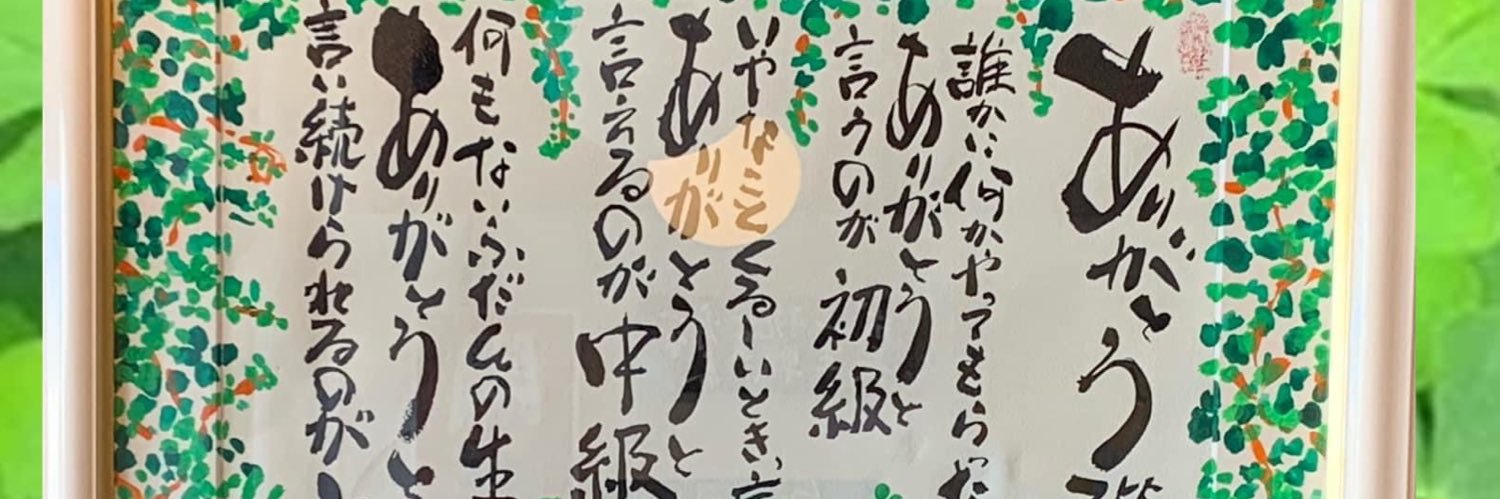 ありがとう
誰かに何かやってもらった
ありがとうと
言うのが初級
いやなことくるしいとき
ありがとうと
言えるのが中級
何もないふだんの生
ありがとうと
言い続けられるのが